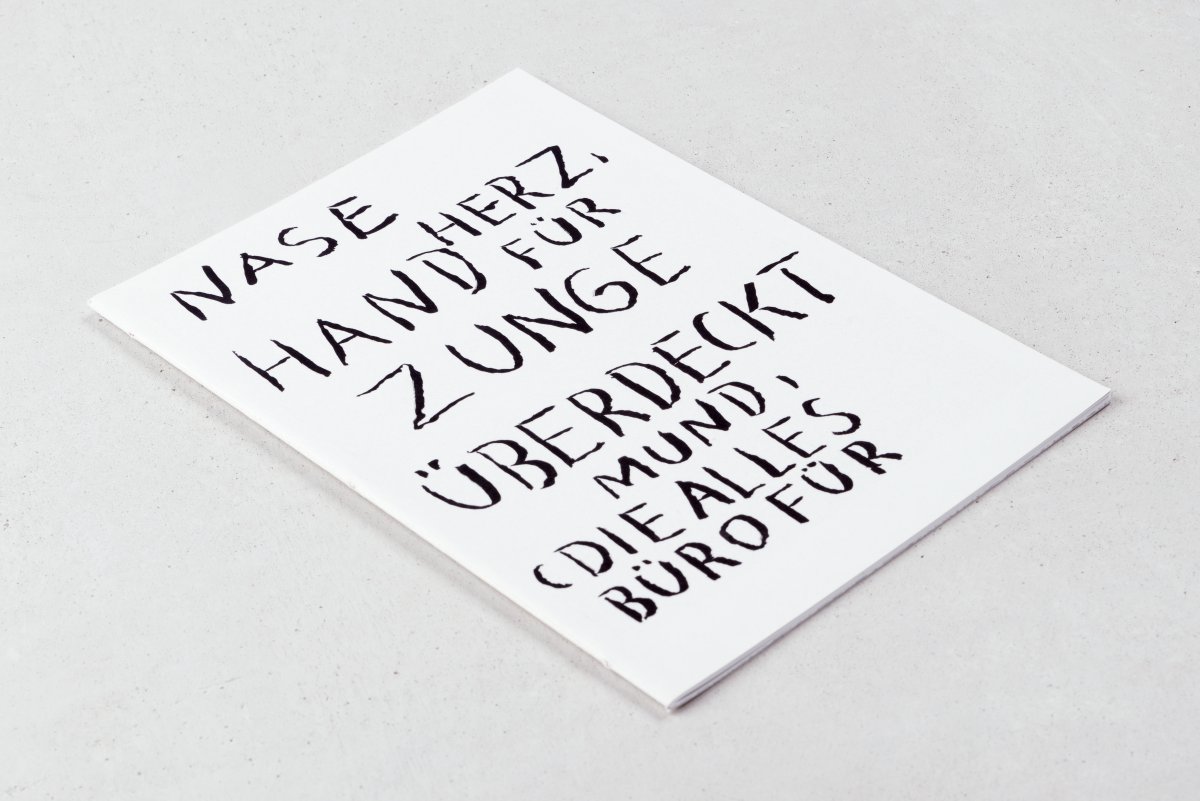 NASE
HERZ,
HAND FÜR
ZUNGE
ÜBERDECKT
MUND,
(DIE ALLES
BÜRO FÜR